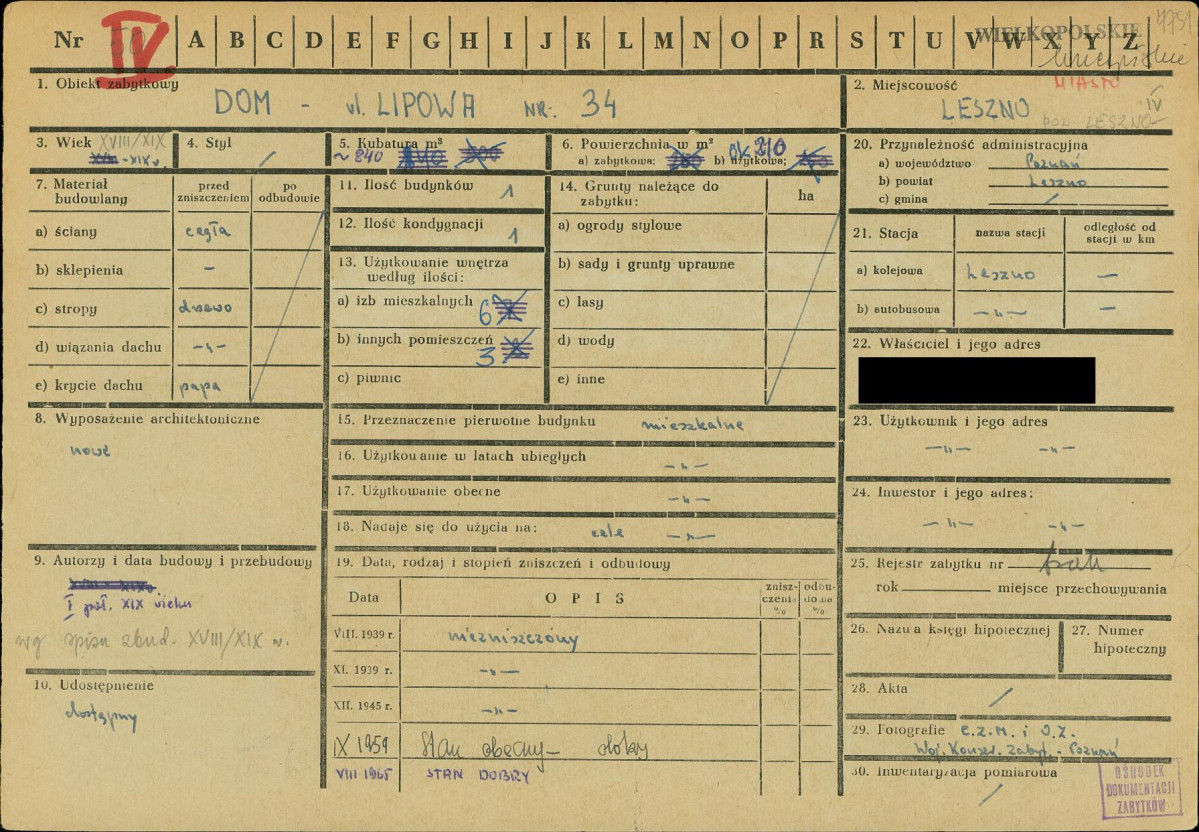 Nr 50 IV A B C D E F G H I J K L M N O P R S T U V W X Y Z
WIELKOPOLSKIE
1. Obiekt zabytkowy
DOM - ul. LIPOWA NR: 34
2. Miejscowość
MIASTO
LESZNO
IV
POW. LESZNO
3. Wiek XVIII/XIX
4. Styl /
5. Kubatura m³
~ 240
6. Powierzchnia w m²
a) zabytkowa: b) użytkowa:
ok 210
20. Przynależność administracyjna
a) województwo Poznań
b) powiat Leszno
c) gmina /
7. Materiał budowlany
przed zniszczeniem
po odbudowie
a) ściany cegła
b) sklepienia -
c) stropy drewo
d) wiązania dachu -"-
e) krycie dachu papa
11. Ilość budynków 1
12. Ilość kondygnacji 1
13. Użytkowanie wnętrza
według ilości:
a) izb mieszkalnych 6
b) innych pomieszczeń 3
c) piwnic
14. Grunty należące do
zabytku:
ha
a) ogrody stylowe
b) sady i grunty uprawne
c) lasy
d) wody
e) inne
21. Stacja
nazwa stacji
odległość od
stacji w km
a) kolejowa Leszno -
b) autobusowa -"- -
22. Właściciel i jego adres
8. Wyposażenie architektoniczne
nowe
15. Przeznaczenie pierwotne budynku mieszkalne
16. Użytkowanie w latach ubiegłych -"-
17. Użytkowanie obecne -"-
18. Nadaje się do użycia na: cele -"-
23. Użytkownik i jego adres
-"- -"-
24. Inwestor i jego adres:
-"- -"-
9. Autorzy i data budowy i przebudowy
XVIII - XIX
I poł. XIX wieku
wg spisu zbud. XVIII/XIX w.
10. Udostępnienie
dostępny
19. Data, rodzaj i stopień zniszczeń i odbudowy
Data
OPIS
znisz-
czenia
%
odbu-
dowa
%
VIII. 1939 r. niezniszczony
XI. 1939 r. -"-
XII. 1945 r. -"-
IX 1959 Stan obecny - dobry
VIII 1965 STAN DOBRY
25. Rejestr zabytku nr brak
rok miejsce przechowywania
26. Nazwa księgi hipotecznej
27. Numer
hipoteczny
28. Akta /
29. Fotografie C.Z.M. i O.Z.
Woj. Konser. Zabyt. - Poznań
30. Inwentaryzacja pomiarowa
/
OŚRODEK
DOKUMENTACJI
ZABYTKÓW